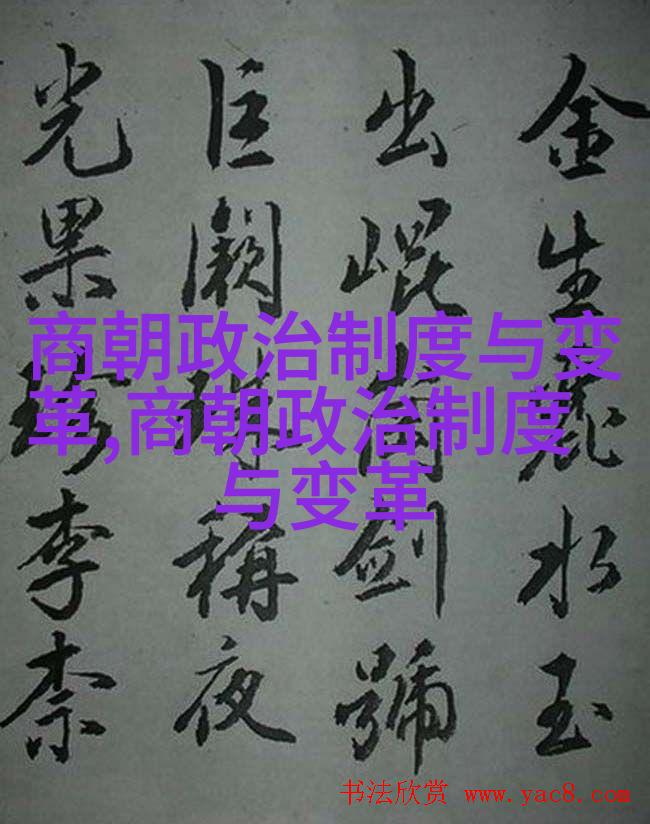 金生麗水玉
出崐岡劍號
巨闕珠稱夜
光果珍李柰
商朝政治制度与变
革,商朝政治制度
与变革
书法欣赏 www.yac8.com